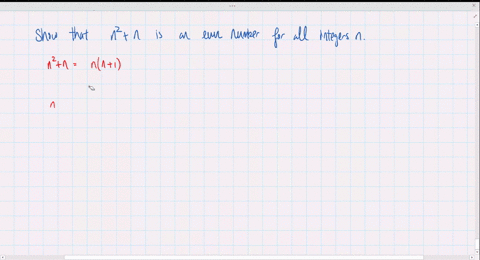 Show that n²+n is an even number for all integers n.
n²+n = n(n+1)
n